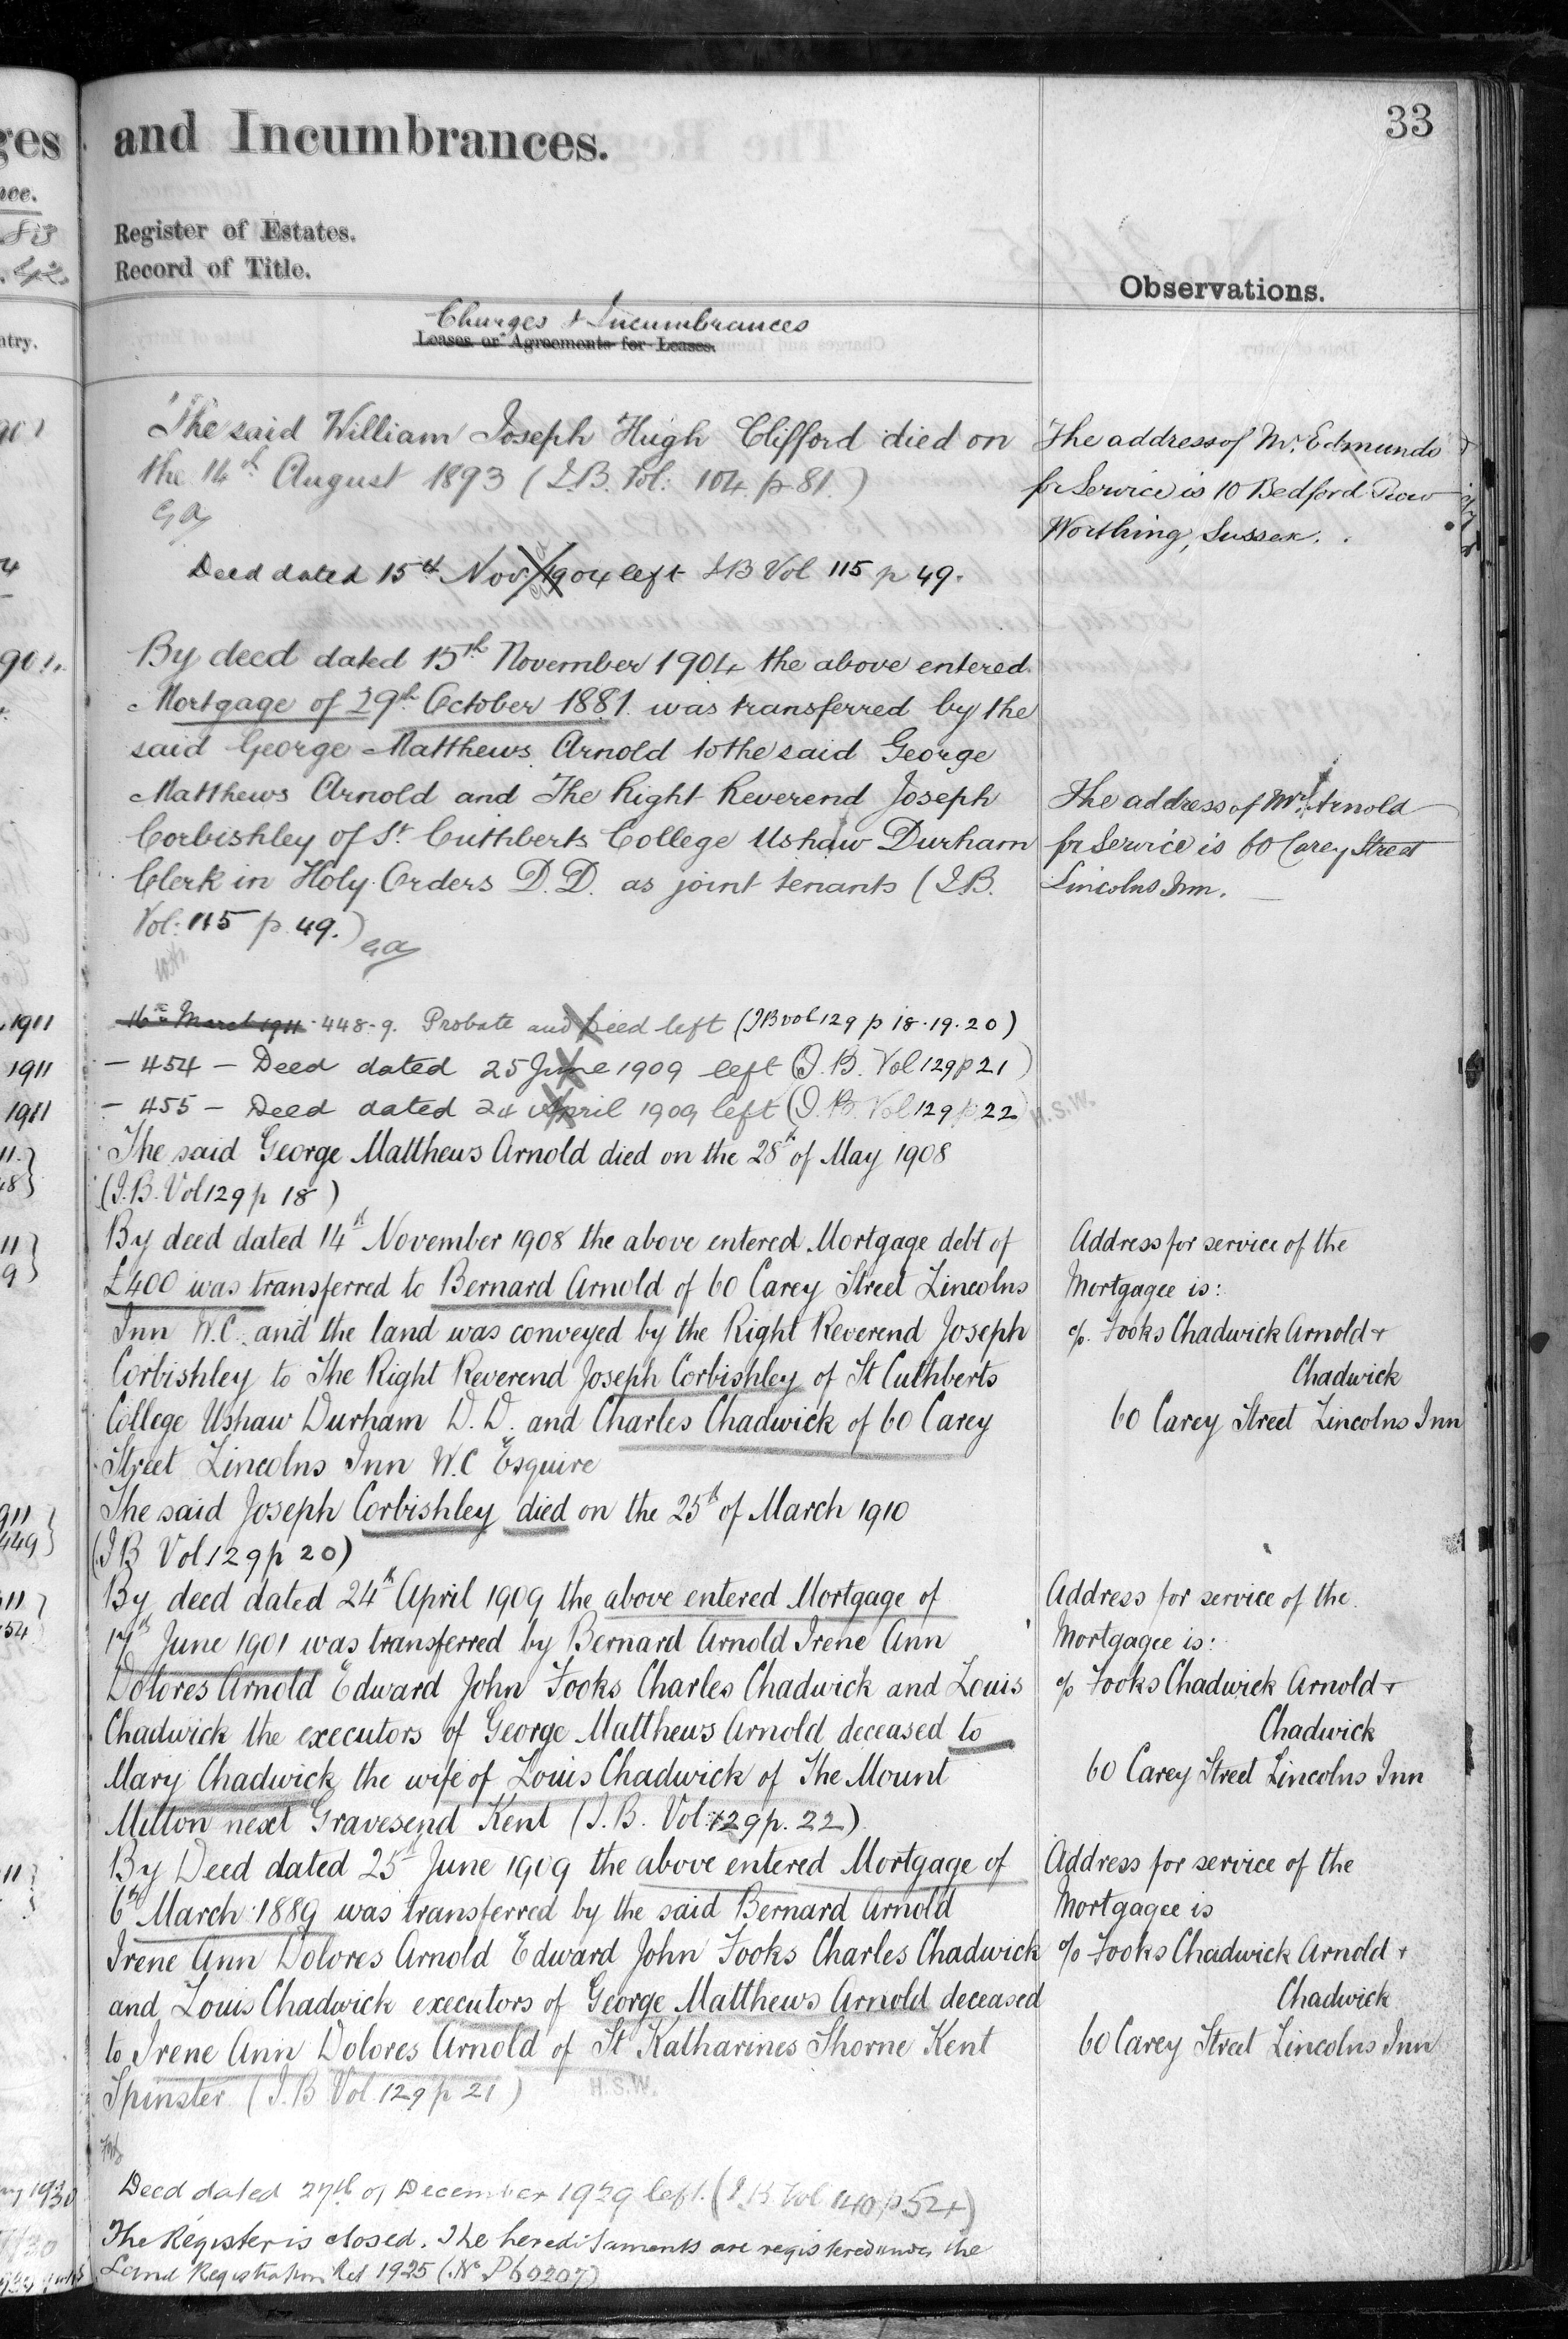 33
and Incumbrances.
Register of Estates.
Record of Title.
Observations.
Charges & Incumbrances
Leases or Agreements for Leases.
The said William Joseph Hugh Clifford died on
the 14th August 1893 (I.B. Vol: 104 p 81.)
Deed dated 15th Nov. 1904 left I B Vol 115 p 49.
By deed dated 15th November 1904 the above entered
Mortgage of 29th October 1881 was transferred by the
said George Matthews Arnold to the said George
Matthews Arnold and The Right Reverend Joseph
Corbishley of St Cuthberts College Ushaw Durham
Clerk in Holy Orders D.D. as joint tenants (I.B.
Vol: 115 p. 49.)
16th March 1911 - 448-9. Probate and Deed left (I B vol 129 p 18.19.20)
- 454 - Deed dated 25 June 1909 left (I. B. Vol 129 p 21)
- 455 - Deed dated 24 April 1909 left (I. B. Vol 129 p. 22)
H.S.W.
The said George Matthews Arnold died on the 28th of May 1908
(I.B. Vol 129 p 18)
By deed dated 14th November 1908 the above entered Mortgage debt of
£400 was transferred to Bernard Arnold of 60 Carey Street Lincolns
Inn W.C. and the land was conveyed by the Right Reverend Joseph
Corbishley to The Right Reverend Joseph Corbishley of St Cuthberts
College Ushaw Durham D.D. and Charles Chadwick of 60 Carey
Street Lincolns Inn W.C Esquire
The said Joseph Corbishley died on the 25th of March 1910
(I B Vol 129 p 20)
By deed dated 24th April 1909 the above entered Mortgage of
17th June 1901 was transferred by Bernard Arnold Irene Ann
Dolores Arnold Edward John Fooks Charles Chadwick and Louis
Chadwick the executors of George Matthews Arnold deceased to
Mary Chadwick the wife of Louis Chadwick of The Mount
Milton next Gravesend Kent (I.B. Vol 129 p. 22)
By Deed dated 25th June 1909 the above entered Mortgage of
6th March 1889 was transferred by the said Bernard Arnold
Irene Ann Dolores Arnold Edward John Fooks Charles Chadwick
and Louis Chadwick executors of George Matthews Arnold deceased
to Irene Ann Dolores Arnold of St Katharines Shorne Kent
Spinster (I.B Vol. 129 p 21)
H.S.W.
Deed dated 27th of December 1929 left. (I.B. Vol 140 p 54)
The Register is closed. The hereditaments are registered under the
Land Registration Act 1925 (No P60207)
The address of Mr. Edmunds
for Service is 10 Bedford Row
Worthing, Sussex.
The address of Mr Arnold
for Service is 60 Carey Street
Lincolns Inn.
Address for service of the
Mortgagee is:
c/o. Fooks Chadwick Arnold +
Chadwick
60 Carey Street Lincolns Inn
Address for service of the
Mortgagee is:
c/o Fooks Chadwick Arnold +
Chadwick
60 Carey Street Lincolns Inn
Address for service of the
Mortgagee is
c/o Fooks Chadwick Arnold +
Chadwick
60 Carey Street Lincolns Inn